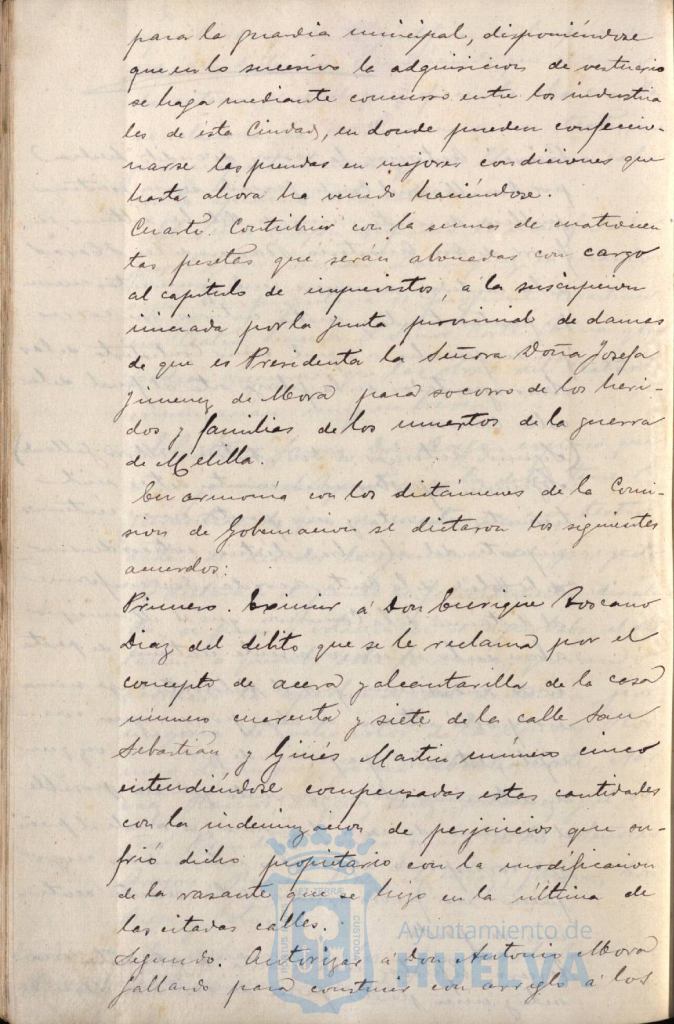 para la guardia municipal, disponiéndose
que en lo sucesivo la adquisicion de vestuario
se haga mediante concurso entre los industria
les de esta Ciudad, en donde pueden confeccio-
narse las prendas en mejores condiciones que
hasta ahora ha venido haciéndose.
Cuarto. Contribuir con la suma de cuatrocien
tas pesetas que serán abonadas con cargo
al capítulo de imprevistos, á la suscripcion
iniciada por la Junta provincial de damas
de que es Presidenta la Señora Doña Josefa
Jimenez de Mora para socorro de los heri-
dos y familias de los muertos de la guerra
de Melilla.
En armonía con los dictámenes de la Comi-
sion de Gobernacion se dictaron los siguientes
acuerdos:
Primero. Eximir á Don Enrique Toscano
Diaz del débito que se le reclama por el
concepto de acera y alcantarilla de la casa
número cuarenta y siete de la calle San
Sebastian y Ginés Martin número cinco
entendiéndose compensadas estas cantidades
con la indemnizacion de perjuicios que su-
frió dicho propietario con la modificacion
de la rasante que se hizo en la última de
las citadas calles.
Segundo. Autorizar á Don Antonio Mora
Gallardo para construir con arreglo á los
Ayuntamiento de
HUELVA